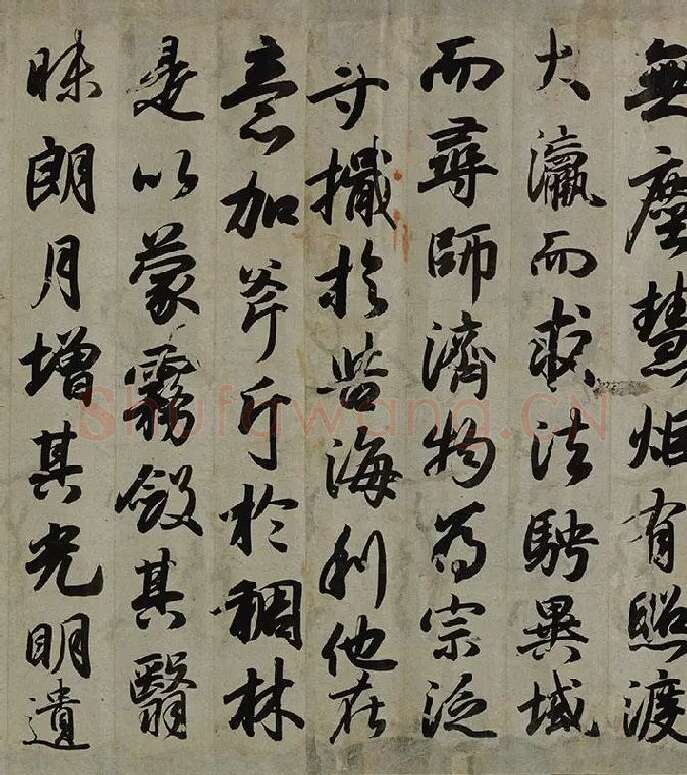 無塵慧炬有照渡
大瀛而求法騁異域
而尋師濟物為宗泛
寸檝於海利他在
意加斧斤於稠林
是以蒙霧斂其翳
昧朗月增其光明遺
Shufawang.CN